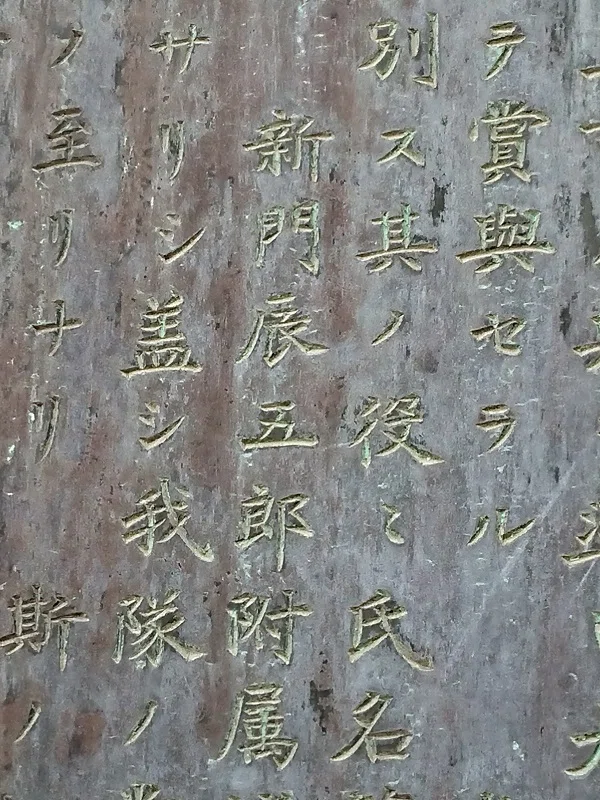 テ賞與セラル
別ス其ノ役〻氏名
新門辰五郎附属
サリシ盖シ我隊ノ
ノ至リナリ
斯ノ